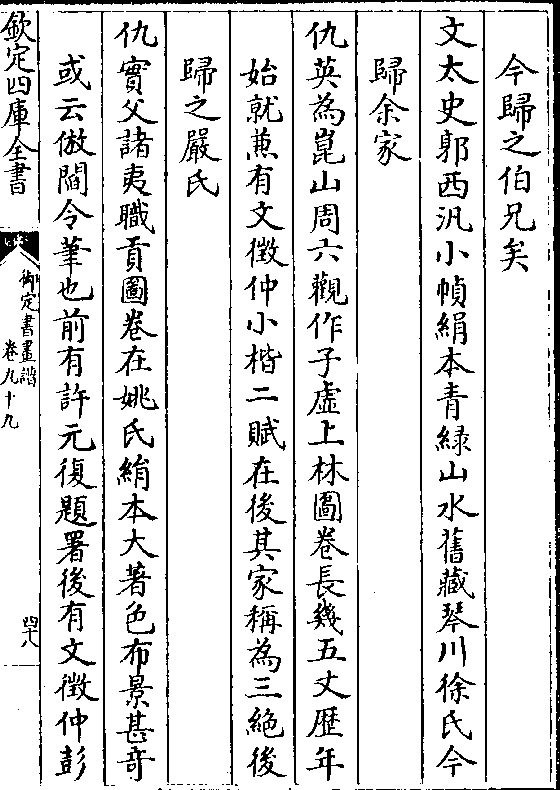 今歸之伯兄矣
文太史郭西汎小幀絹本青緑山水舊藏琴川徐氏今
歸余家
仇英為崑山周六觀作子虛上林圖卷長幾五丈歷年
始就兼有文徵仲小楷二賦在後其家稱為三絶後
歸之嚴氏
仇實父諸夷職貢圖卷在姚氏絹本大著色布景甚奇
或云倣閻令筆也前有許元復題署後有文徵仲彭
欽定四庫全書
御定書畫譜
卷九十九
四十八